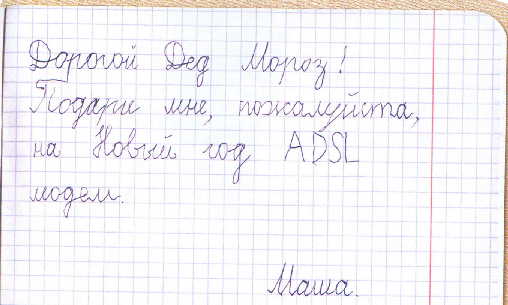 Дорогой Дед Мороз!
Подари мне, пожалуйста,
на Новый год ADSL
модем.
Маша.